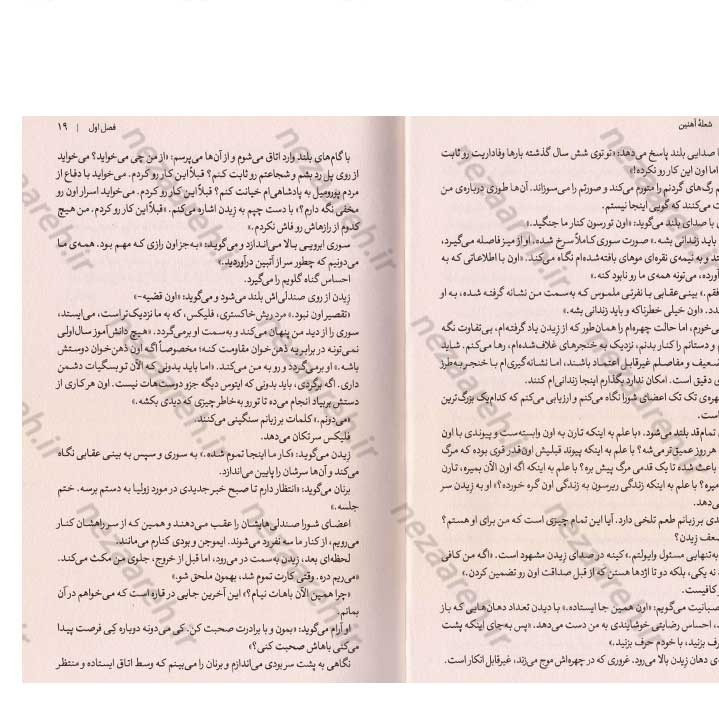 شعلهٔ آهنین
صدایی بلند پاسخ می‌دهد: «تو توی شش سال گذشته بارها وفاداریت رو ثابت
اما اون این کار رو نکرده!»
رگ‌های گردنم را متورم می‌کند و صورتم را می‌سوزاند. آن‌ها طوری درباره‌ی من
می‌کنند که گویی اینجا نیستم.
با صدای بلند می‌گوید: «اون تورسون کنار ما جنگید.»
باید زندانی بشه.» صورت سوری کاملاً سرخ شده. او از میز فاصله می‌گیرد،
و به نیمه‌ی نقره‌ای موهای بافته‌شده‌ام نگاه می‌کند. «اون با اطلاعاتی که به
آورده، می‌تونه همه‌ی ما رو نابود کنه.»
بینی‌عقابی با نفرتی ملموس که به‌سمت من نشانه گرفته شده، به او
«اون خیلی خطرناکه و باید زندانی بشه.»
می‌خورم، اما حالت چهره‌ام را همان‌طور که از زیدن یاد گرفته‌ام، بی‌تفاوت نگه
و دستانم را کنار بدنم، نزدیک به خنجرهای غلاف‌شده‌ام، رها می‌کنم. شاید
ضعیف و مفاصلم غیرقابل اعتماد باشند، اما نشانه‌گیری‌ام با خنجر به‌طرز
دقیق است. امکان ندارد بگذارم اینجا زندانی‌ام کنند.
تک تک اعضای شورا نگاه می‌کنم و ارزیابی می‌کنم که کدام‌یک بزرگ‌ترین
است.
تمام‌قد بلند می‌شود. «با علم به اینکه تارن به اون وابسته‌ست و پیوندی با اون
هر روز عمیق‌تر می‌شه؟ با علم به اینکه پیوند قبلیش اون‌قدر قوی بوده که مرگ
باعث شده تا یک قدمی مرگ پیش بره؟ با علم به اینکه اگه اون الآن بمیره، تارن
میره؟ با علم به اینکه زندگی ریرسون به زندگی اون گره خورده؟» او به زیدن سر
می‌دهد.
بر زبانم طعم تلخی دارد. آیا این تمام چیزی است که من برای او هستم؟
ضعف زیدن؟
به‌تنهایی مسئول وایولتم.» کینه در صدای زیدن مشهود است. «اگه من کافی
نه یکی، بلکه دو تا اژدها هستن که از قبل صداقت اون رو تضمین کردن.»
کافیست.
عصبانیت می‌گویم: «اون همین جا ایستاده.» با دیدن تعداد دهان‌هایی که باز
احساس رضایتی خوشایندی به من دست می‌دهد. «پس به‌جای اینکه پشت
حرف بزنید، با خودم حرف بزنید.»
دهان زیدن بالا می‌رود. غروری که در چهره‌اش موج می‌زند، غیرقابل انکار است.
فصل اول | ۱۹
با گام‌های بلند وارد اتاق می‌شوم و از آن‌ها می‌پرسم: «از من چی می‌خواید؟ می‌خواید
از روی پل رد بشم و شجاعتم رو ثابت کنم؟ قبلاً این کار رو کردم. می‌خواید با دفاع از
مردم پورومیل به پادشاهی‌ام خیانت کنم؟ قبلاً این کار رو کردم. می‌خواید اسرار اون رو
مخفی نگه دارم؟» با دست چپم به زیدن اشاره می‌کنم. «قبلاً این کار رو کردم. من هیچ
کدوم از رازهاش رو فاش نکردم.»
سوری ابرویی بالا می‌اندازد و می‌گوید: «به‌جز اون رازی که مهم بود. همه‌ی ما
می‌دونیم که چطور سر از آتبین درآوردید.»
احساس گناه گلویم را می‌گیرد.
زیدن از روی صندلی‌اش بلند می‌شود و می‌گوید: «اون قضیه-»
«تقصیر اون نبود.» مرد ریش خاکستری، فلیکس، که به ما نزدیک‌تر است، می‌ایستد،
سوری را از دید من پنهان می‌کند و به‌سمت او برمی‌گردد. «هیچ دانش‌آموز سال‌اولی
نمی‌تونه در برابر یه ذهن‌خوان مقاومت کنه؛ مخصوصاً اگه اون ذهن‌خوان دوستش
باشه.» او برمی‌گردد و رو به من می‌کند. «اما باید بدونی که الآن تو بسگیات دشمن
داری. اگه برگردی، باید بدونی که ایتوس دیگه جزو دوست‌هات نیست. اون هر کاری از
دستش بربیاد انجام می‌ده تا تو رو به‌خاطر چیزی که دیدی بکشه.»
«می‌دونم.» کلمات بر زبانم سنگینی می‌کنند.
فلیکس سر تکان می‌دهد.
زیدن می‌گوید: «کار ما اینجا تموم شده.» به سوری و سپس به بینی عقابی نگاه
می‌کند و آن‌ها سرشان را پایین می‌اندازند.
برنان می‌گوید: «انتظار دارم تا صبح خبر جدیدی در مورد زولیا به دستم برسه. ختم
جلسه.»
اعضای شورا صندلی‌هایشان را عقب می‌دهند و همین که از سر راهشان کنار
می‌رویم، از کنار ما سه نفر رد می‌شوند. ایموجن و بودی کنارم می‌مانند.
لحظه‌ای بعد، زیدن به‌سمت در می‌رود، اما قبل از خروج، جلوی من مکث می‌کند.
«می‌ریم دره. وقتی کارت تموم شد، بهمون ملحق شو.»
«چرا همین الآن باهات نیام؟» این آخرین جایی در قاره است که می‌خواهم در آن
بمانم.
او آرام می‌گوید: «بمون و با برادرت صحبت کن. کی می‌دونه دوباره کِی فرصت پیدا
می‌کنی باهاش صحبت کنی؟»
نگاهی به پشت سر بودی می‌اندازم و برنان را می‌بینم که وسط اتاق ایستاده و منتظر
nezaareh.ir